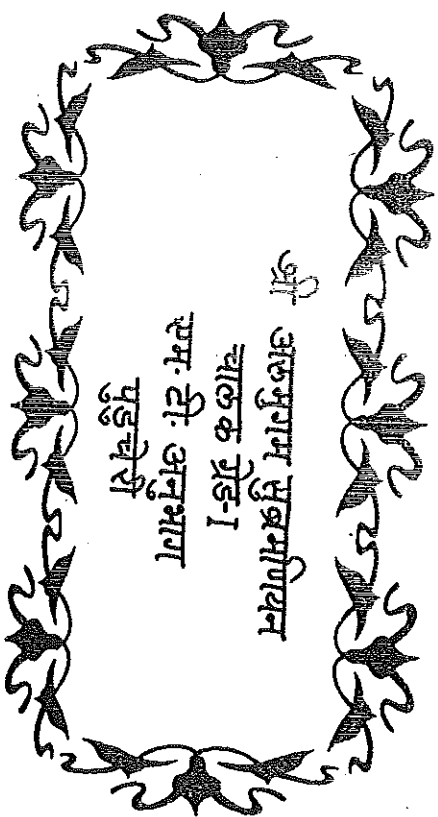 श्री अलमुगम सुब्रमणियन
चालक ग्रेड-I
एम. टी. अनुभाग
पुडुचेरी